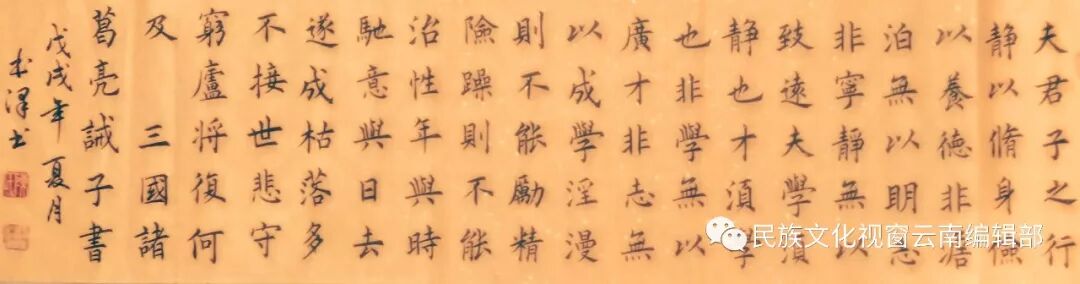 夫君子之行
静以脩身儉
以養德非澹
泊無以明志
非寧静無以
致遠夫學須
静也才須學
也非學無以
廣才非志無
以成學淫漫
則不能勵精
險躁則不能
治性年與時
馳意與日去
遂成枯落多
不接世悲守
窮廬將復何
及 三國諸
葛亮誡子書
戊戌年夏月
泽书
民族文化视窗云南编辑部